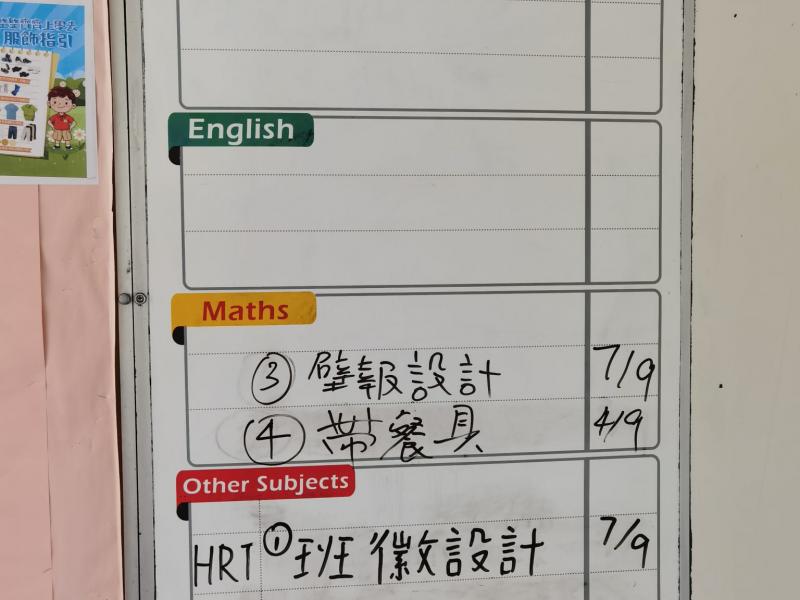 服飾指引
English
Maths
③ 壁報設計 7/9
④ 帶餐具 4/9
Other Subjects
HRT ① 班徽設計 7/9